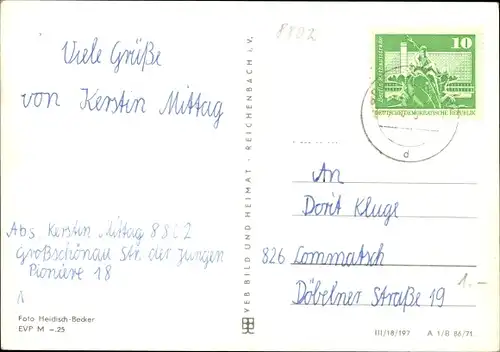 8802
Viele Grüße
von Kerstin Mittag
Abs. Kerstin Mittag 8802
Großschönau Str. der Jungen
Pioniere 18
Foto Heidisch-Becker
EVP M –.25
VEB BILD UND HEIMAT · REICHENBACH I. V.
10
DEUTSCHE DEMOKRATISCHE REPUBLIK
d
An
Dorit Kluge
826 Lommatsch
Döbelner Straße 19
1.-
III/18/197 A 1/B 86/71